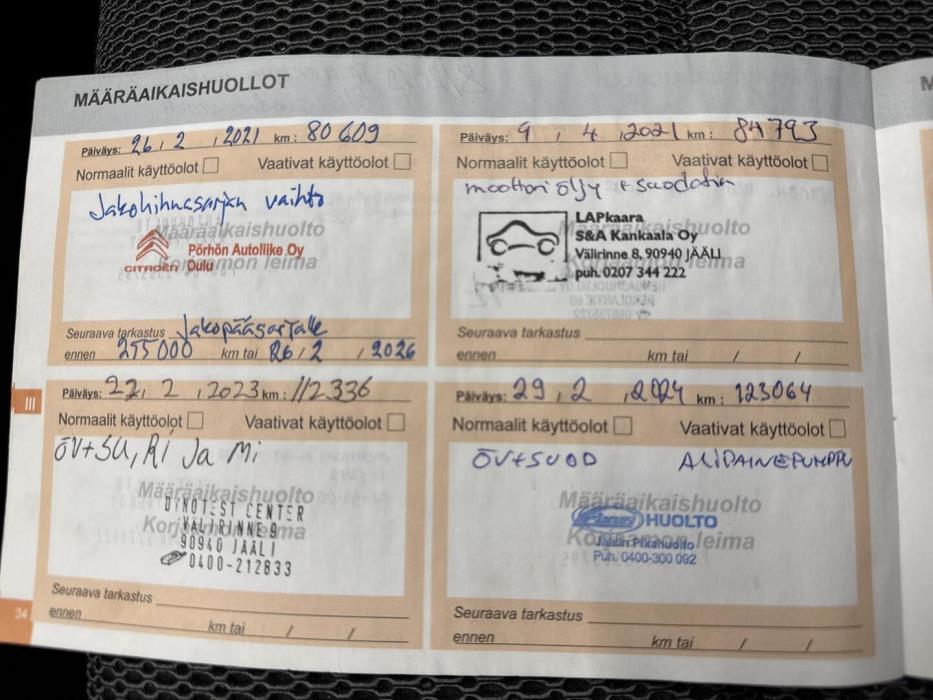 MÄÄRÄAIKAISHUOLLOT
Päiväys: 26, 2, 2021 km: 80 609
Normaalit käyttöolot Vaativat käyttöolot
Jakohihnasarjan vaihto
Määräaikaishuolto
Pörhön Autoliike Oy
CITROËN Oulu
Korjaamon leima
Seuraava tarkastus Jakopääsarjalle
ennen 255000 km tai 26/2, 2026
Päiväys: 9, 4, 2021 km: 84793
Normaalit käyttöolot Vaativat käyttöolot
moottori öljy + suodatin
LAPkaara
Määräaikaishuolto
S&A Kankaala Oy
Välirinne 8, 90940 JÄÄLI
puh. 0207 344 222
Seuraava tarkastus
ennen km tai / /
III
Päiväys: 22, 2, 2023 km: 112.336
Normaalit käyttöolot Vaativat käyttöolot
ÖV+SU, Ri Ja Mi
Määräaikaishuolto
DINOTEST CENTER
VÄLIRINNE 9
Korjaamon leima
90940 JÄÄLI
0400-212833
Seuraava tarkastus
ennen km tai / /
34
Päiväys: 29, 2, 2024 km: 123064
Normaalit käyttöolot Vaativat käyttöolot
ÖV+SUOD ALIPAINEPUMPPU
Määräaikaishuolto
HUOLTO
Korjaamon leima
Jäälin Pikahuolto
Puh. 0400-300 092
Seuraava tarkastus
ennen km tai / /